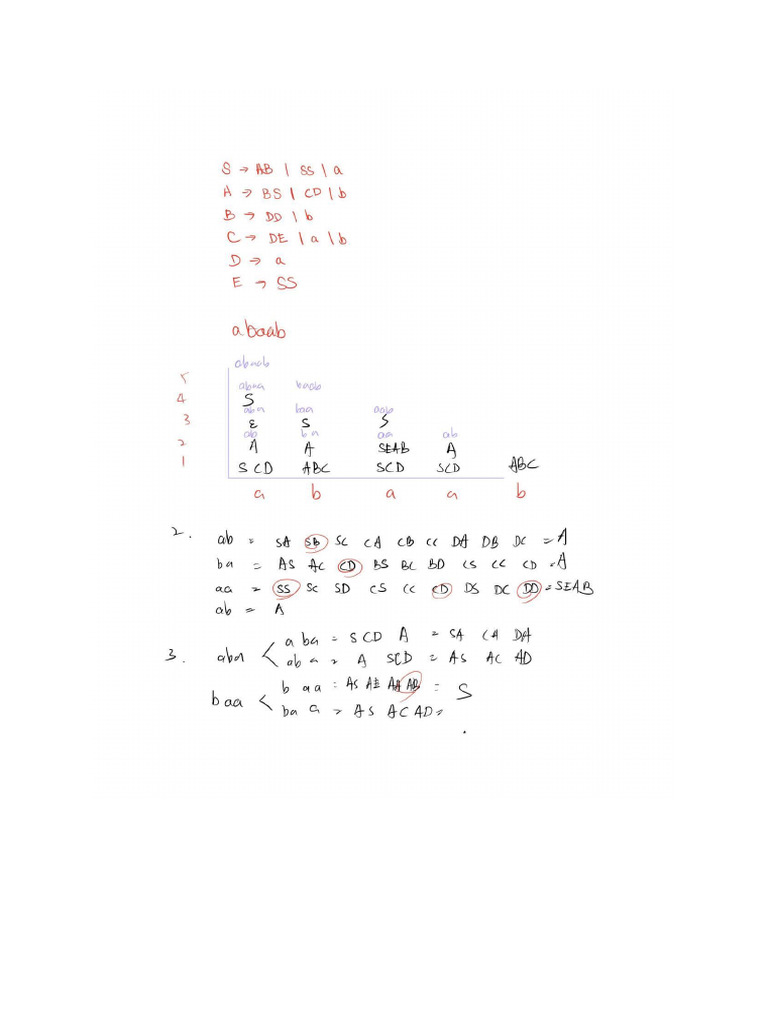 S → AB | SS | a
A → BS | CD | b
B → DD | b
C → DE | a | b
D → a
E → SS
abaab
5 abaab
abaa baab
4 S
aba baa aab
3 ε S S
ab ba aa ab
2 A A SEAB A
1 SCD ABC SCD SCD ABC
a b a a b
2. ab = SA SB SC CA CB CC DA DB DC = A
ba = AS AC CD BS BC BD CS CC CD = A
aa = SS SC SD CS CC CD DS DC DD = SEAB
ab = A
3. aba < a ba = SCD A = SA CA DA
ab a = A SCD = AS AC AD
baa < b aa = AS AE AA AB = S
ba a = AS AC AD =